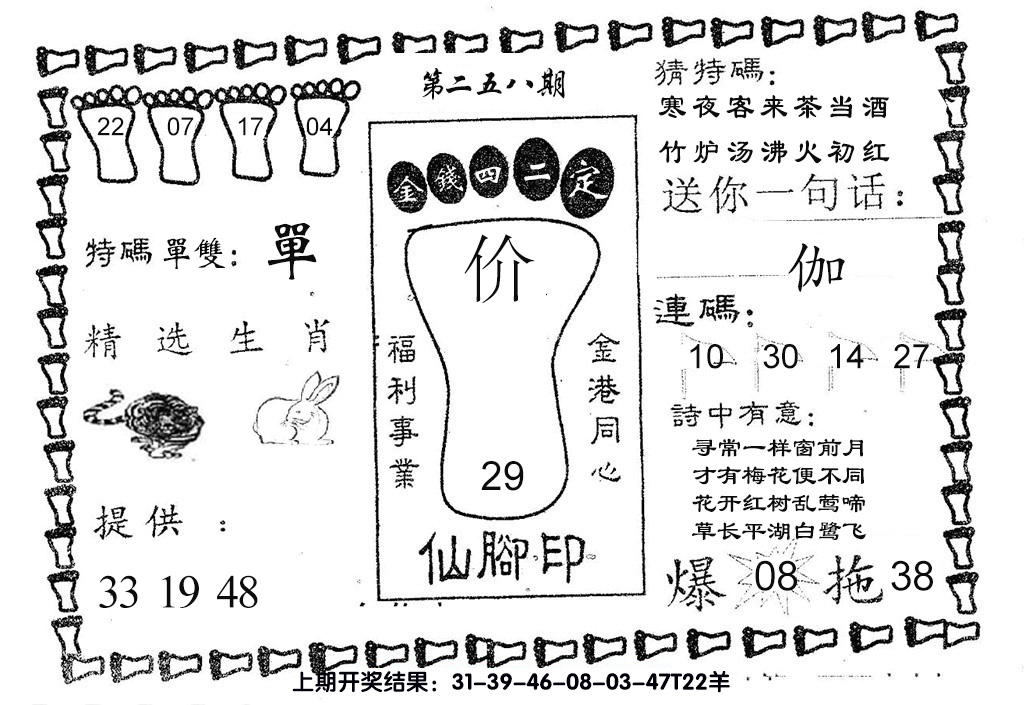 第二五八期
22 07 17 04
特碼單雙：單
精选生肖
提供：
33 19 48
金錢四二定
价
福利事業
金港同心
29
仙腳印
猜特碼：
寒夜客来茶当酒
竹炉汤沸火初红
送你一句话：
伽
連碼：
10 30 14 27
詩中有意：
寻常一样窗前月
才有梅花便不同
花开红树乱莺啼
草长平湖白鹭飞
爆 08 拖 38
上期开奖结果：31-39-46-08-03-47T22羊